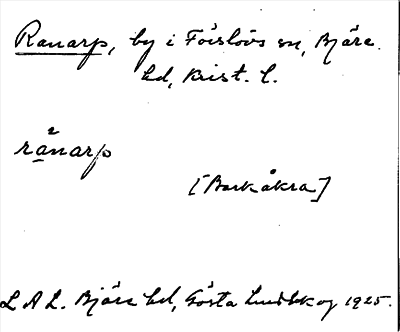 Ranarp, by i Förslövs sn, Bjäre
hd, Krist. l.
rånarp
[Barkåkra]
L A L. Bjäre hd, Gösta Lindskog 1925.